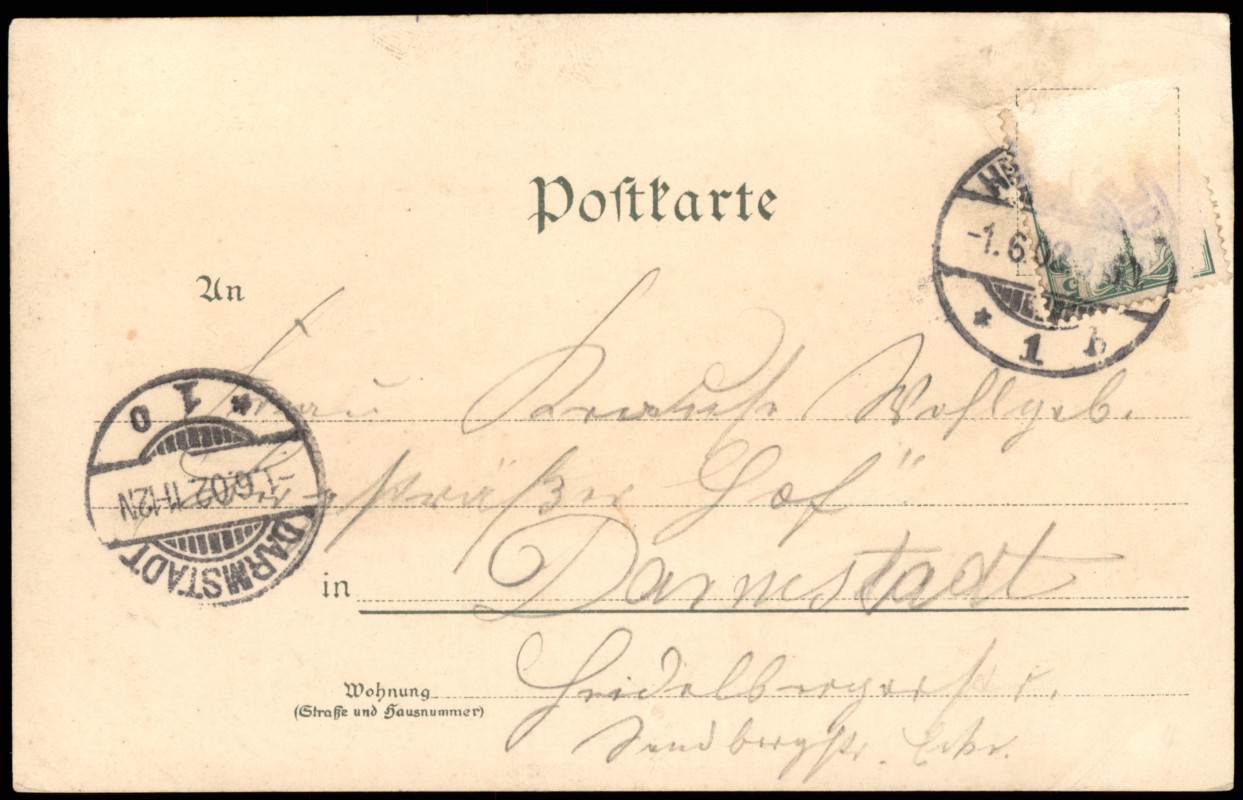 Postkarte
-1.6.02
1 b
An
Frau Krauß Wohlgeb.
"Bergsträßer Hof"
in Darmstadt
Wohnung Heidelbergerstr.
(Straße und Hausnummer)
Sandbergstr. Ecke.
* 1 o
-1.6.02. 11-12N
DARMSTADT
5